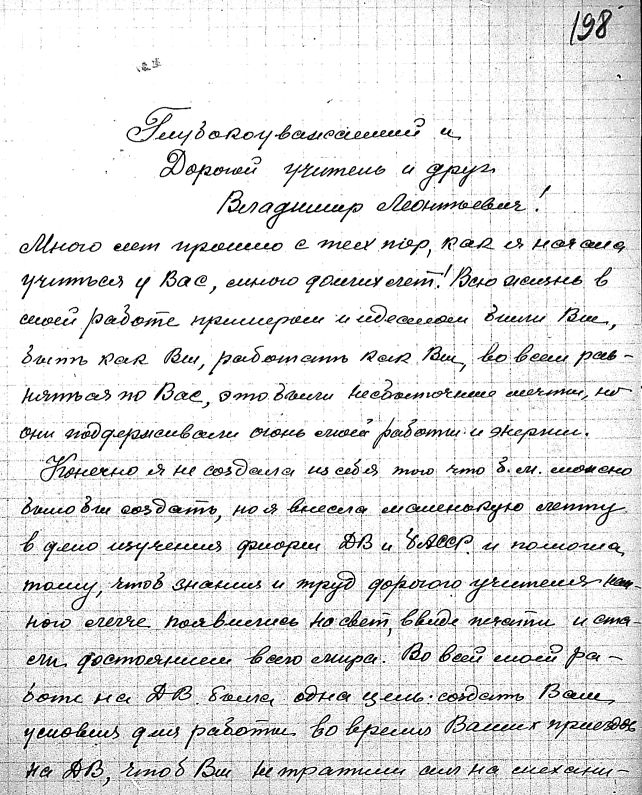 198
Глубокоуважаемый и
Дорогой учитель и друг
Владимир Леонтьевич!
Много лет прошло с тех пор, как я начала
учиться у Вас, много долгих лет! Всю жизнь в
моей работе примером и идеалом были Вы,
быть как Вы, работать как Вы, во всем рав-
няться по Вас, это были несбыточные мечты, но
они поддерживали огонь моей работы и энергии.
Конечно я не создала из себя того что б.м. можно
было бы создать, но я внесла маленькую лепту
в дело изучения флоры ДВ и БАССР. и помогла
тому, чтоб знания и труд дорогого учителя нем-
ного легче появились на свет, ввиде печати и ста-
ли достоянием всего мира. Во всей моей ра-
боте на ДВ. была одна цель: создать Вам
условия для работы во время Ваших приездов
на ДВ, чтоб Вы не тратили сил на механи-